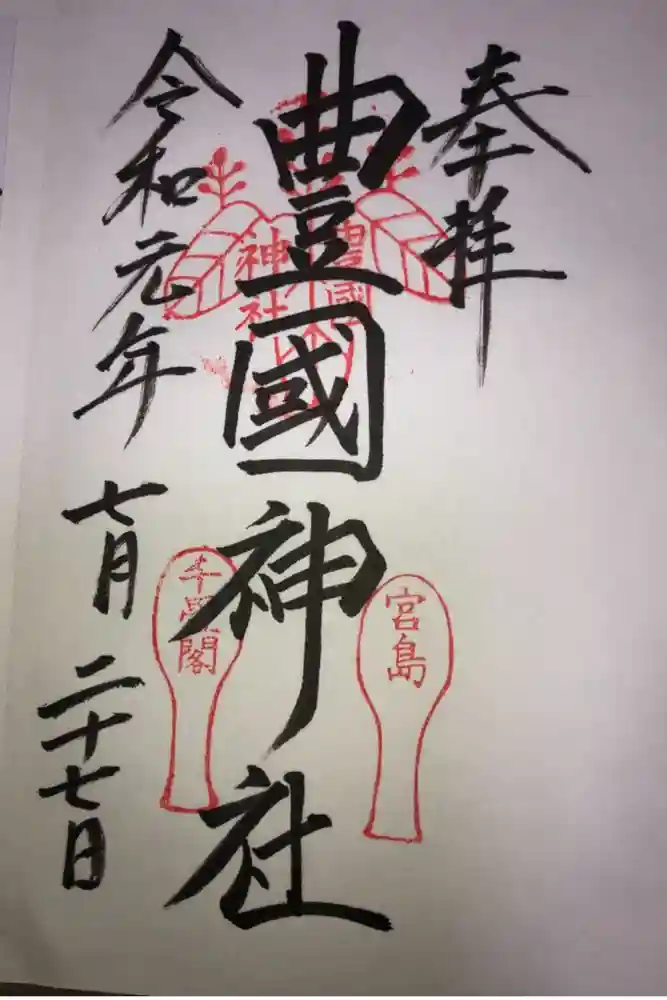 奉拝
豊國神社
令和元年 七月 二十七日
豊國
神社
宮島
千畳閣